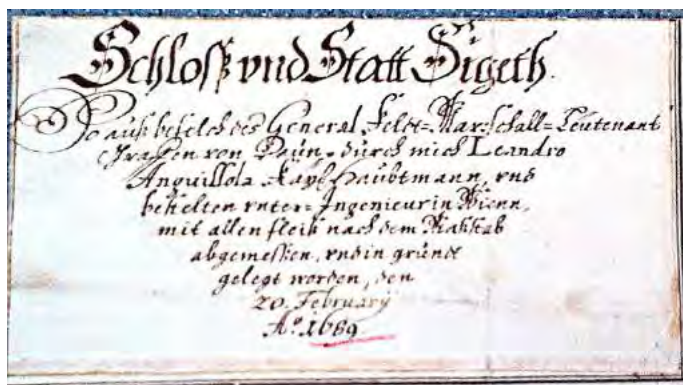 Schloß vnd Statt Sigeth.
So auß befelch des General Feldt=Marschall=Leutenant
Graffen von Daun, durch mich Leandro
Anguissola Kayſ. Haubtmann, vnd
bestelten vnter=Ingenieur in Wienn,
mit allen fleiß nach dem Maßstab
abgemessen, vnd in grundt
gelegt worden, den
20. February
Aᵒ. 1689.